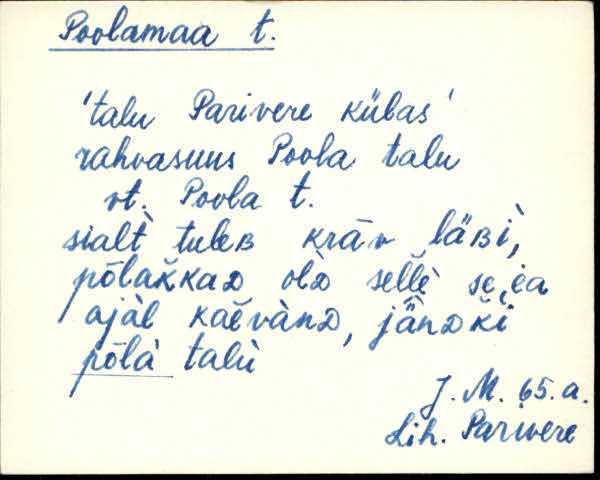 Poolamaa t.
'talu Parivere külas'
rahvasuus Poola talu
vt. Poola t.
sialt̀ tuleʙ krāv läʙì,
pōlakkaᴅ olᴅ̀ sellè
ajàl kaevànᴅ,
pōlà talù
J. M. 65. a.
Lih. Parivere